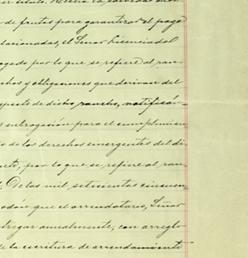 de frutas para garantizar el pago
relacionadas, el Señor Licenciado
ogado por lo que se refiere al ran-
chos y obligaciones que derivan del
specto de dicho rancho, notificán-
subrogación para el cumplimien
o de los derechos emergentes del di
por lo que se refiere al ran
De las mil, setecientas cincuen
odón que el arrendatario, Señor
tregar anualmente, con arreglo
de la escritura de arrendamiento